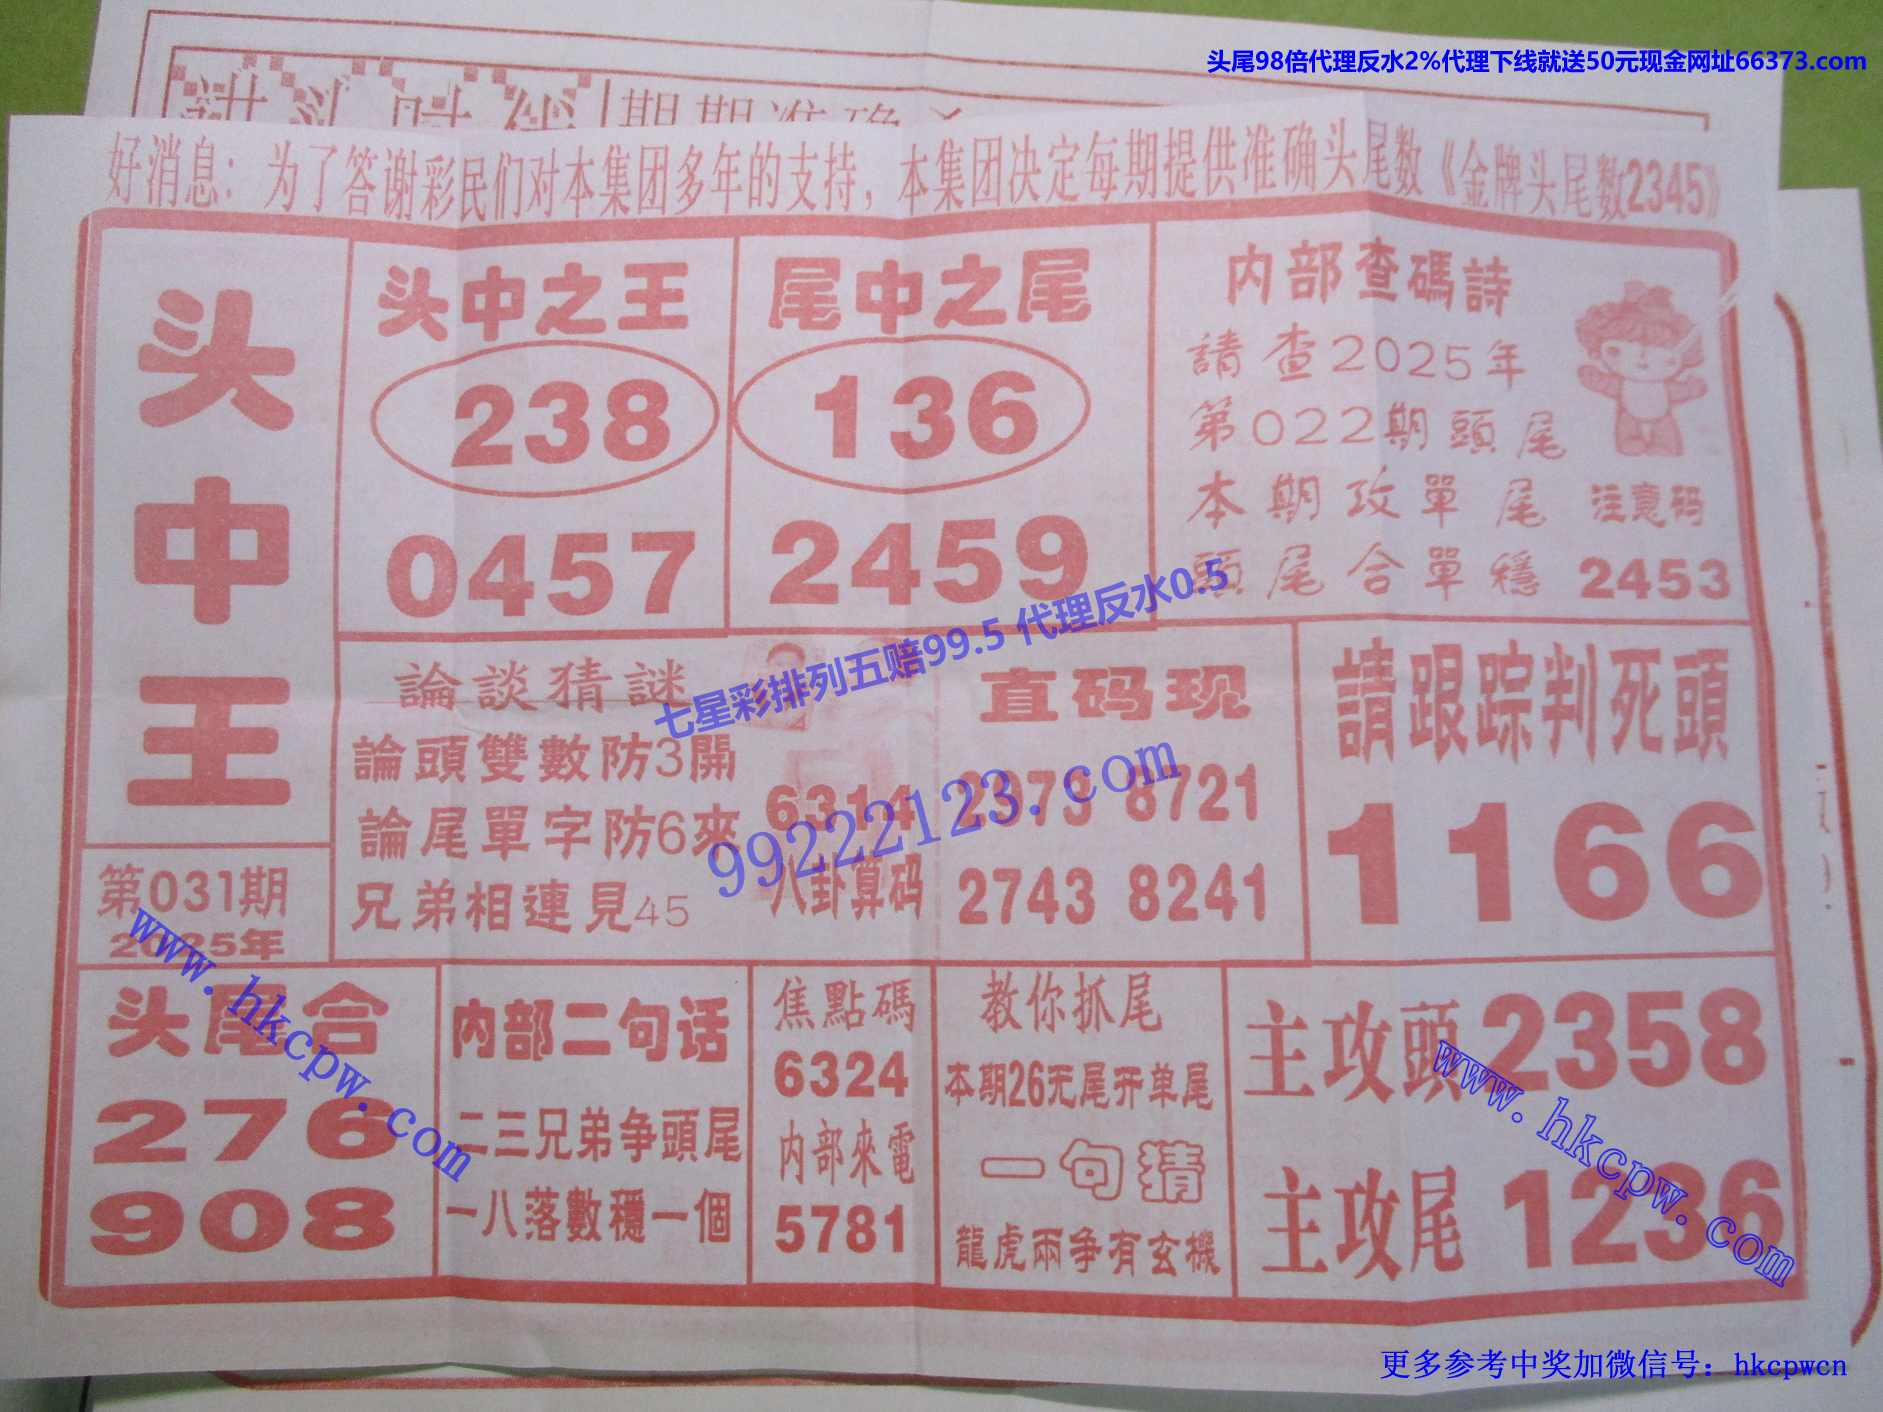 头尾98倍代理反水2%代理下线就送50元现金网址66373.com
期期准确
好消息：为了答谢彩民们对本集团多年的支持，本集团决定每期提供准确头尾数《金牌头尾数2345》
头中王
第031期
2025年
头中之王
238
0457
尾中之尾
136
2459
内部查碼詩
請查2025年
第022期頭尾
本期攻單尾
頭尾合單穩
注意码
2453
論談猜謎
論頭雙數防3開
論尾單字防6來
兄弟相連見45
6314
八卦算码
直码现
2379 8721
2743 8241
請跟踪判死頭
1166
七星彩排列五赔99.5 代理反水0.5
99222123.com
头尾合
276
908
www.hkcpw.com
内部二句话
二三兄弟争頭尾
一八落數穩一個
焦點碼
6324
内部來電
5781
教你抓尾
本期26无尾开单尾
一句猜
龍虎兩争有玄機
主攻頭2358
主攻尾1236
www.hkcpw.com
更多参考中奖加微信号：hkcpwcn